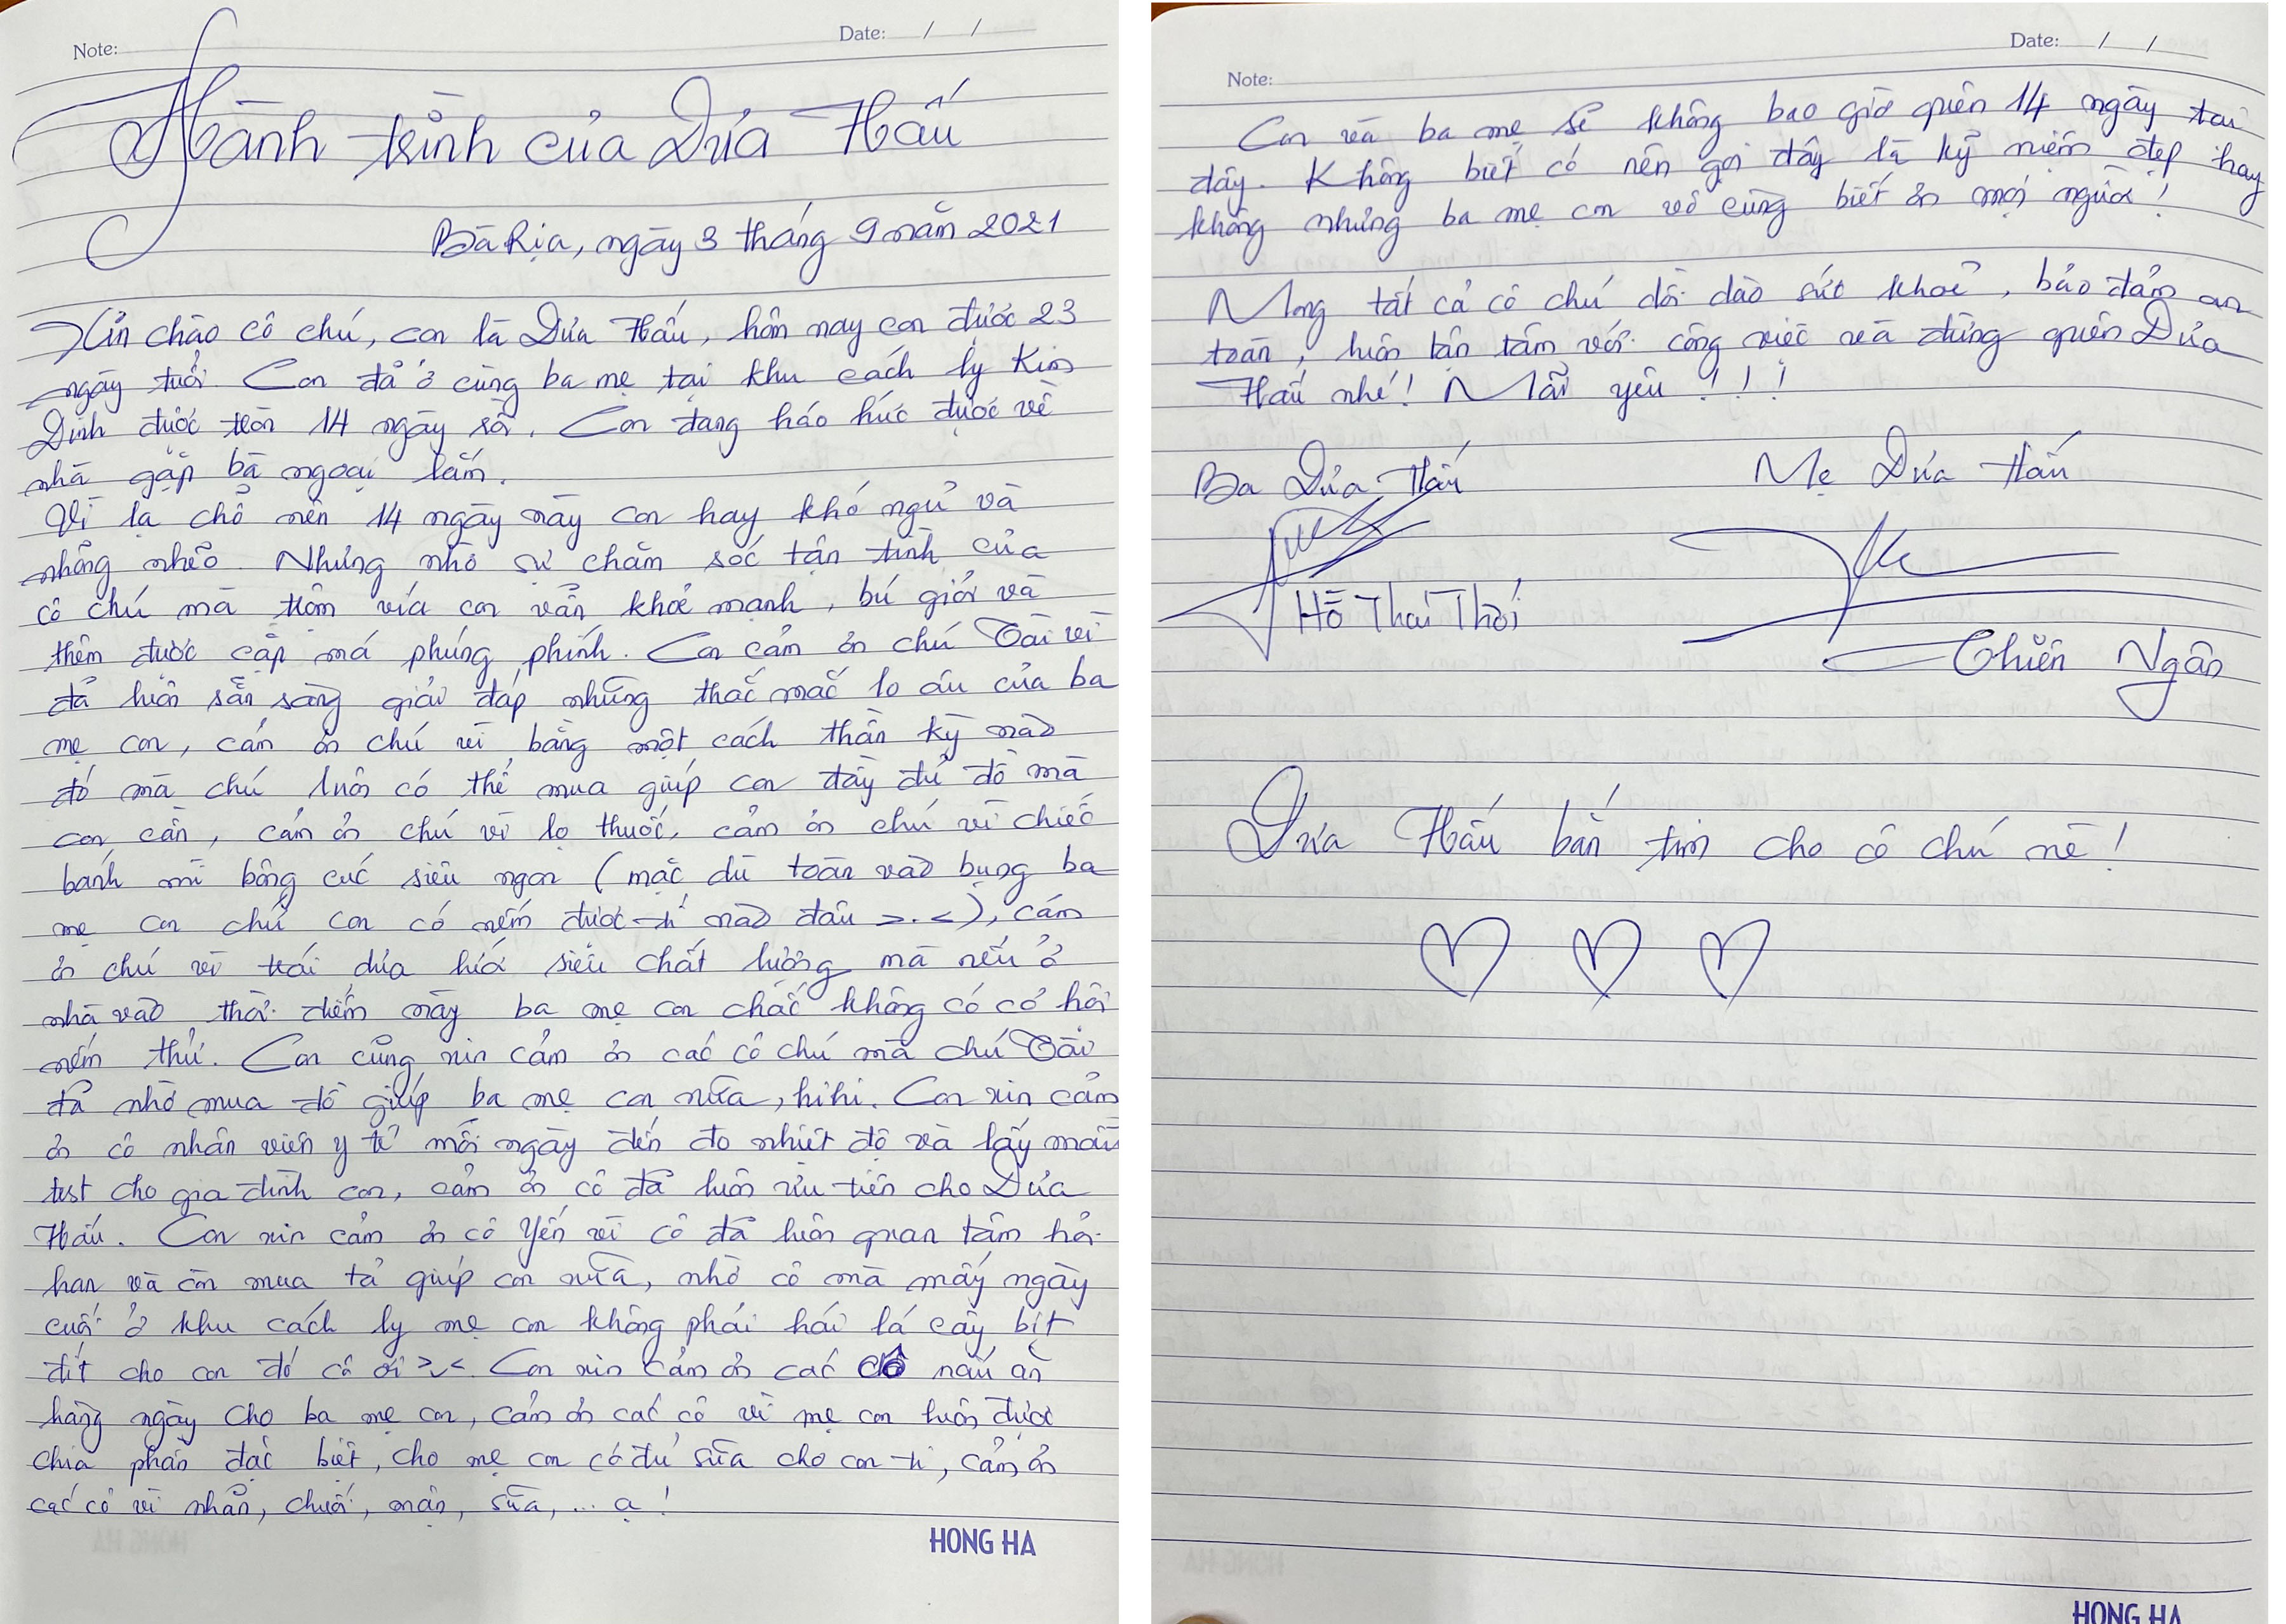 Note:
Date: / /
Hành trình của Dứa Hấu
Bà Rịa, ngày 3 tháng 9 năm 2021
Xin chào cô chú, con là Dứa Hấu, hôm nay con được 23
ngày tuổi. Con đã ở cùng ba mẹ tại khu cách ly Kim
Dinh được tròn 14 ngày rồi. Con đang háo hức được về
nhà gặp bà ngoại lắm.
Vì lạ chỗ nên 14 ngày này con hay khó ngủ và
nhõng nhẽo. Nhưng nhờ sự chăm sóc tận tình của
cô chú mà trộm vía con vẫn khoẻ mạnh, bú giỏi và
thêm được cặp má phúng phính. Con cảm ơn chú Tài vì
đã luôn sẵn sàng giải đáp những thắc mắc lo âu của ba
mẹ con, cám ơn chú vì bằng một cách thần kỳ nào
đó mà chú luôn có thể mua giúp con đầy đủ đồ mà
con cần, cám ơn chú vì lọ thuốc, cảm ơn chú vì chiếc
bánh mì bông cúc siêu ngon (mặc dù toàn vào bụng ba
mẹ con chứ con có nếm được tí nào đâu >.<), cám
ơn chú vì trái dứa hấu siêu chất lượng mà nếu ở
nhà vào thời điểm này ba mẹ con chắc không có cơ hội
nếm thử. Con cũng xin cảm ơn các cô chú mà chú Tài
đã nhờ mua đồ giúp ba mẹ con nữa, hihi. Con xin cảm
ơn cô nhân viên y tế mỗi ngày đến đo nhiệt độ và lấy mẫu
test cho gia đình con, cảm ơn cô đã luôn ưu tiên cho Dứa
Hấu. Con xin cảm ơn cô Yến vì cô đã luôn quan tâm hỏi
han và còn mua tả giúp con nữa, nhờ cô mà mấy ngày
cuối ở khu cách ly mẹ con không phải hái lá cây bịt
đít cho con đó cô ơi >.< Con xin cảm ơn các cô nấu ăn
hàng ngày cho ba mẹ con, cảm ơn các cô vì mẹ con luôn được
chia phần đặc biệt, cho mẹ con có đủ sữa cho con ti, cảm ơn
các cô vì nhãn, chuối, mận, sữa, ... ạ!
HONG HA
Note:
Date: / /
Con và ba mẹ sẽ không bao giờ quên 14 ngày tại
đây. Không biết có nên gọi đây là kỷ niệm đẹp hay
không nhưng ba mẹ con vô cùng biết ơn mọi người!
Mong tất cả cô chú dồi dào sức khoẻ, bảo đảm an
toàn, luôn tận tâm với công việc và đừng quên Dứa
Hấu nhé! Mãi yêu!!!
Ba Dứa Hấu
Mẹ Dứa Hấu
Hồ Thái Thới
Thiên Ngân
Dứa Hấu bắn tim cho cô chú nè!
HONG HA